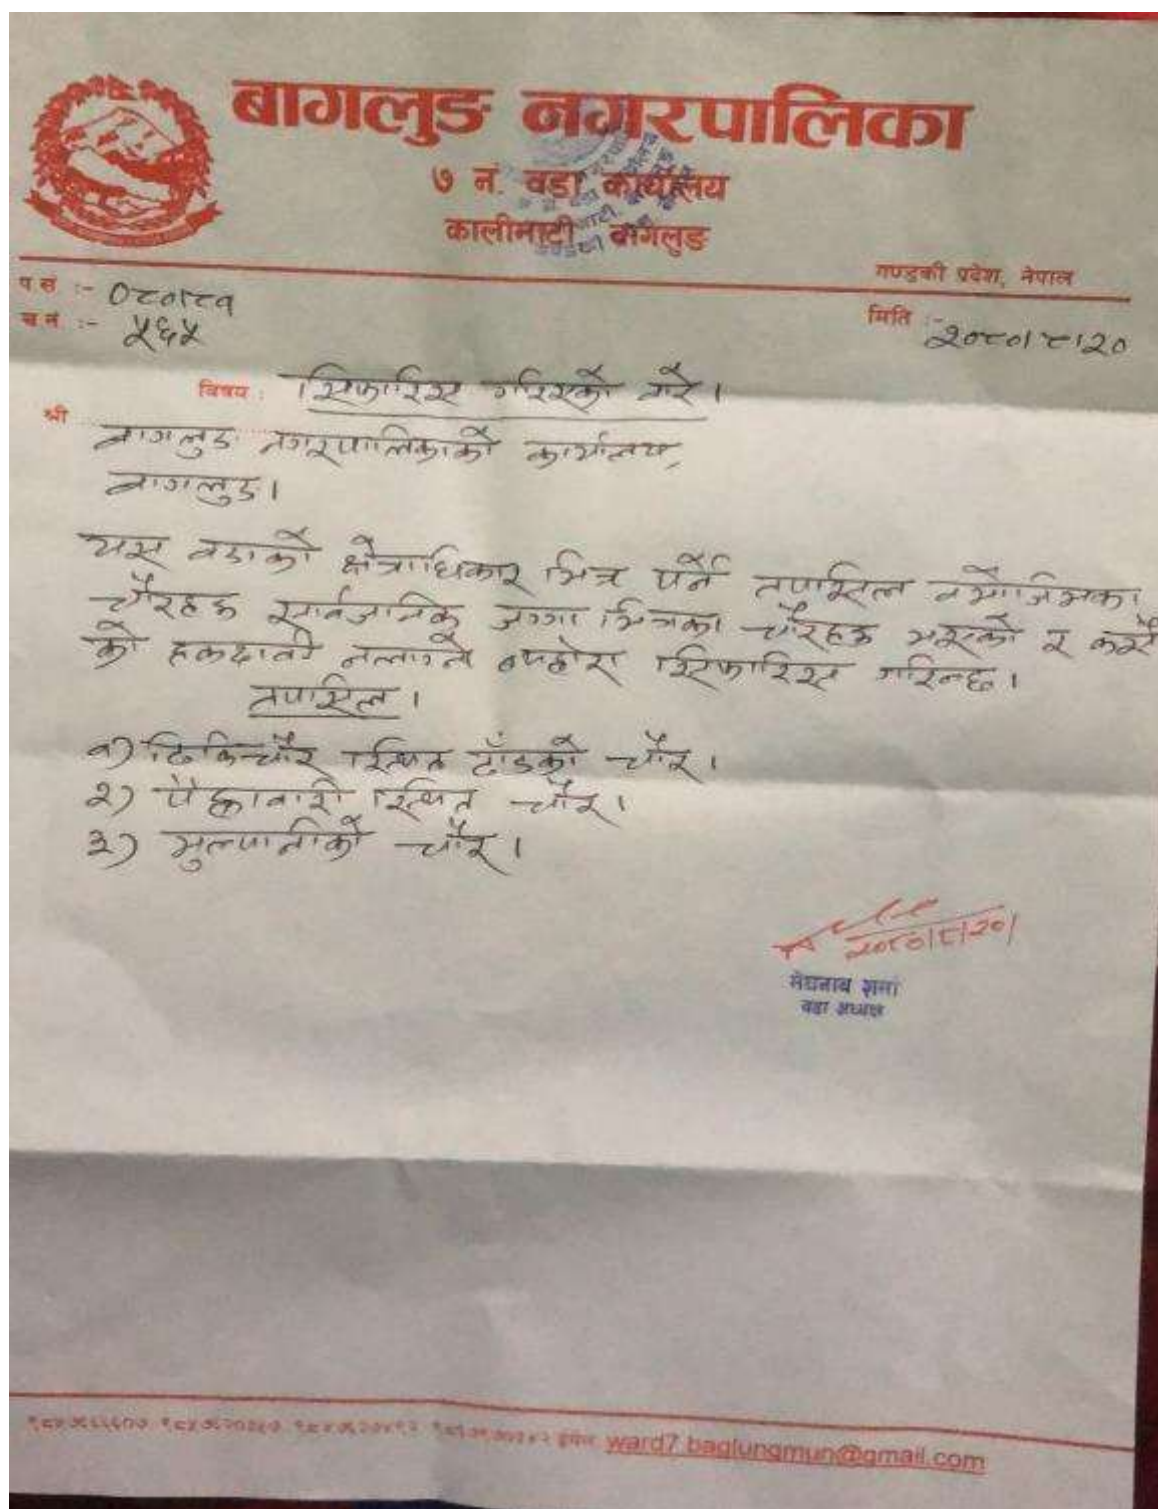 बागलुङ नगरपालिका
७ नं. वडा कार्यालय
कालीमाटी बागलुङ
गण्डकी प्रदेश, नेपाल
प सं :- ०८०।८१
च नं :- ५६५
मिति :- २०८०।८।२०
विषय : सिफारिस गरिएको बारे।
श्री बागलुङ नगरपालिकाको कार्यालय,
बागलुङ।
यस वडाको क्षेत्राधिकार भित्र पर्ने तपासिल बमोजिमका
चौरहरु सार्वजनिक जग्गा भित्रका चौरहरु भएको र कसै
को हकदावी नलाग्ने व्यहोरा सिफारिस गरिन्छ।
तपासिल।
१) ढिकिचौर स्थित टाँडको चौर।
२) स्थित चौर।
३) मुलपानीको चौर।
२०८०।८।२०।
मेघनाथ शर्मा
वडा अध्यक्ष
इमेल ward7.baglungmun@gmail.com